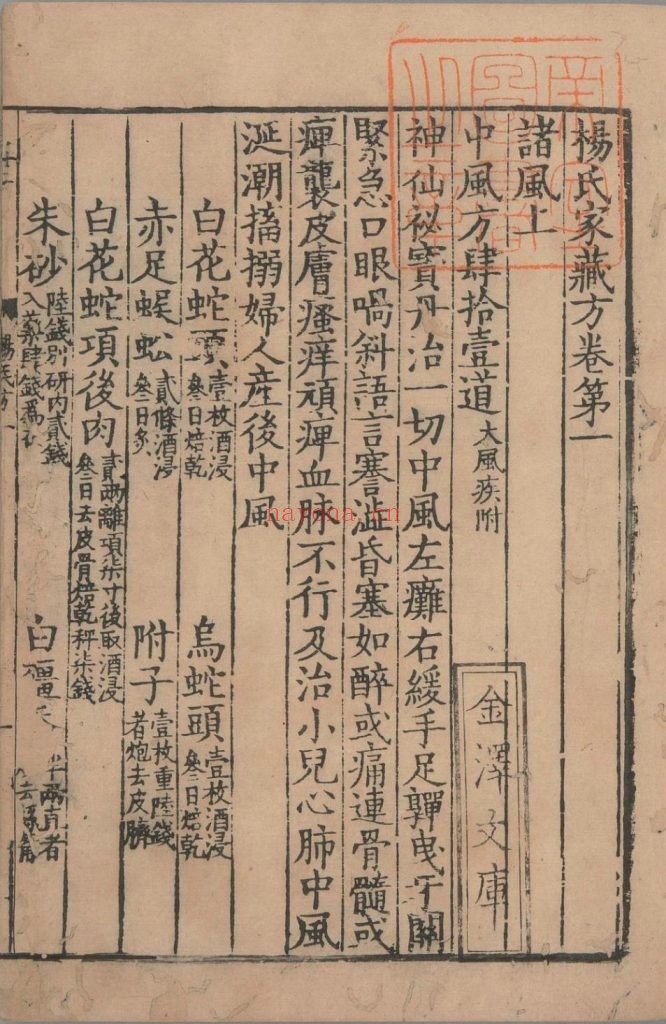 楊氏家藏方卷第一
諸風上
中風方肆拾壹道大風疾附
神仙祕寳丹治一切中風左癱右緩手足嚲曳牙關
緊急口眼喎斜語言謇澁昏塞如醉或痛連骨髓或
痺襲皮膚瘙痒頑痺血脉不行及治小兒心肺中風
涎潮搐搦婦人産後中風
白花蛇頭壹枚酒浸叄日焙乾
烏蛇頭壹枚酒浸叄日焙乾
赤足蜈蚣貳條酒浸叄日炙
附子壹枚重陸錢者炮去皮臍
白花蛇項後肉貳兩離項柒寸後取酒浸叄日去皮骨焙乾秤柒錢
朱砂陸錢別研内貳錢入藥肆錢爲衣
白殭半兩直者去
金澤文庫
楊氏方一